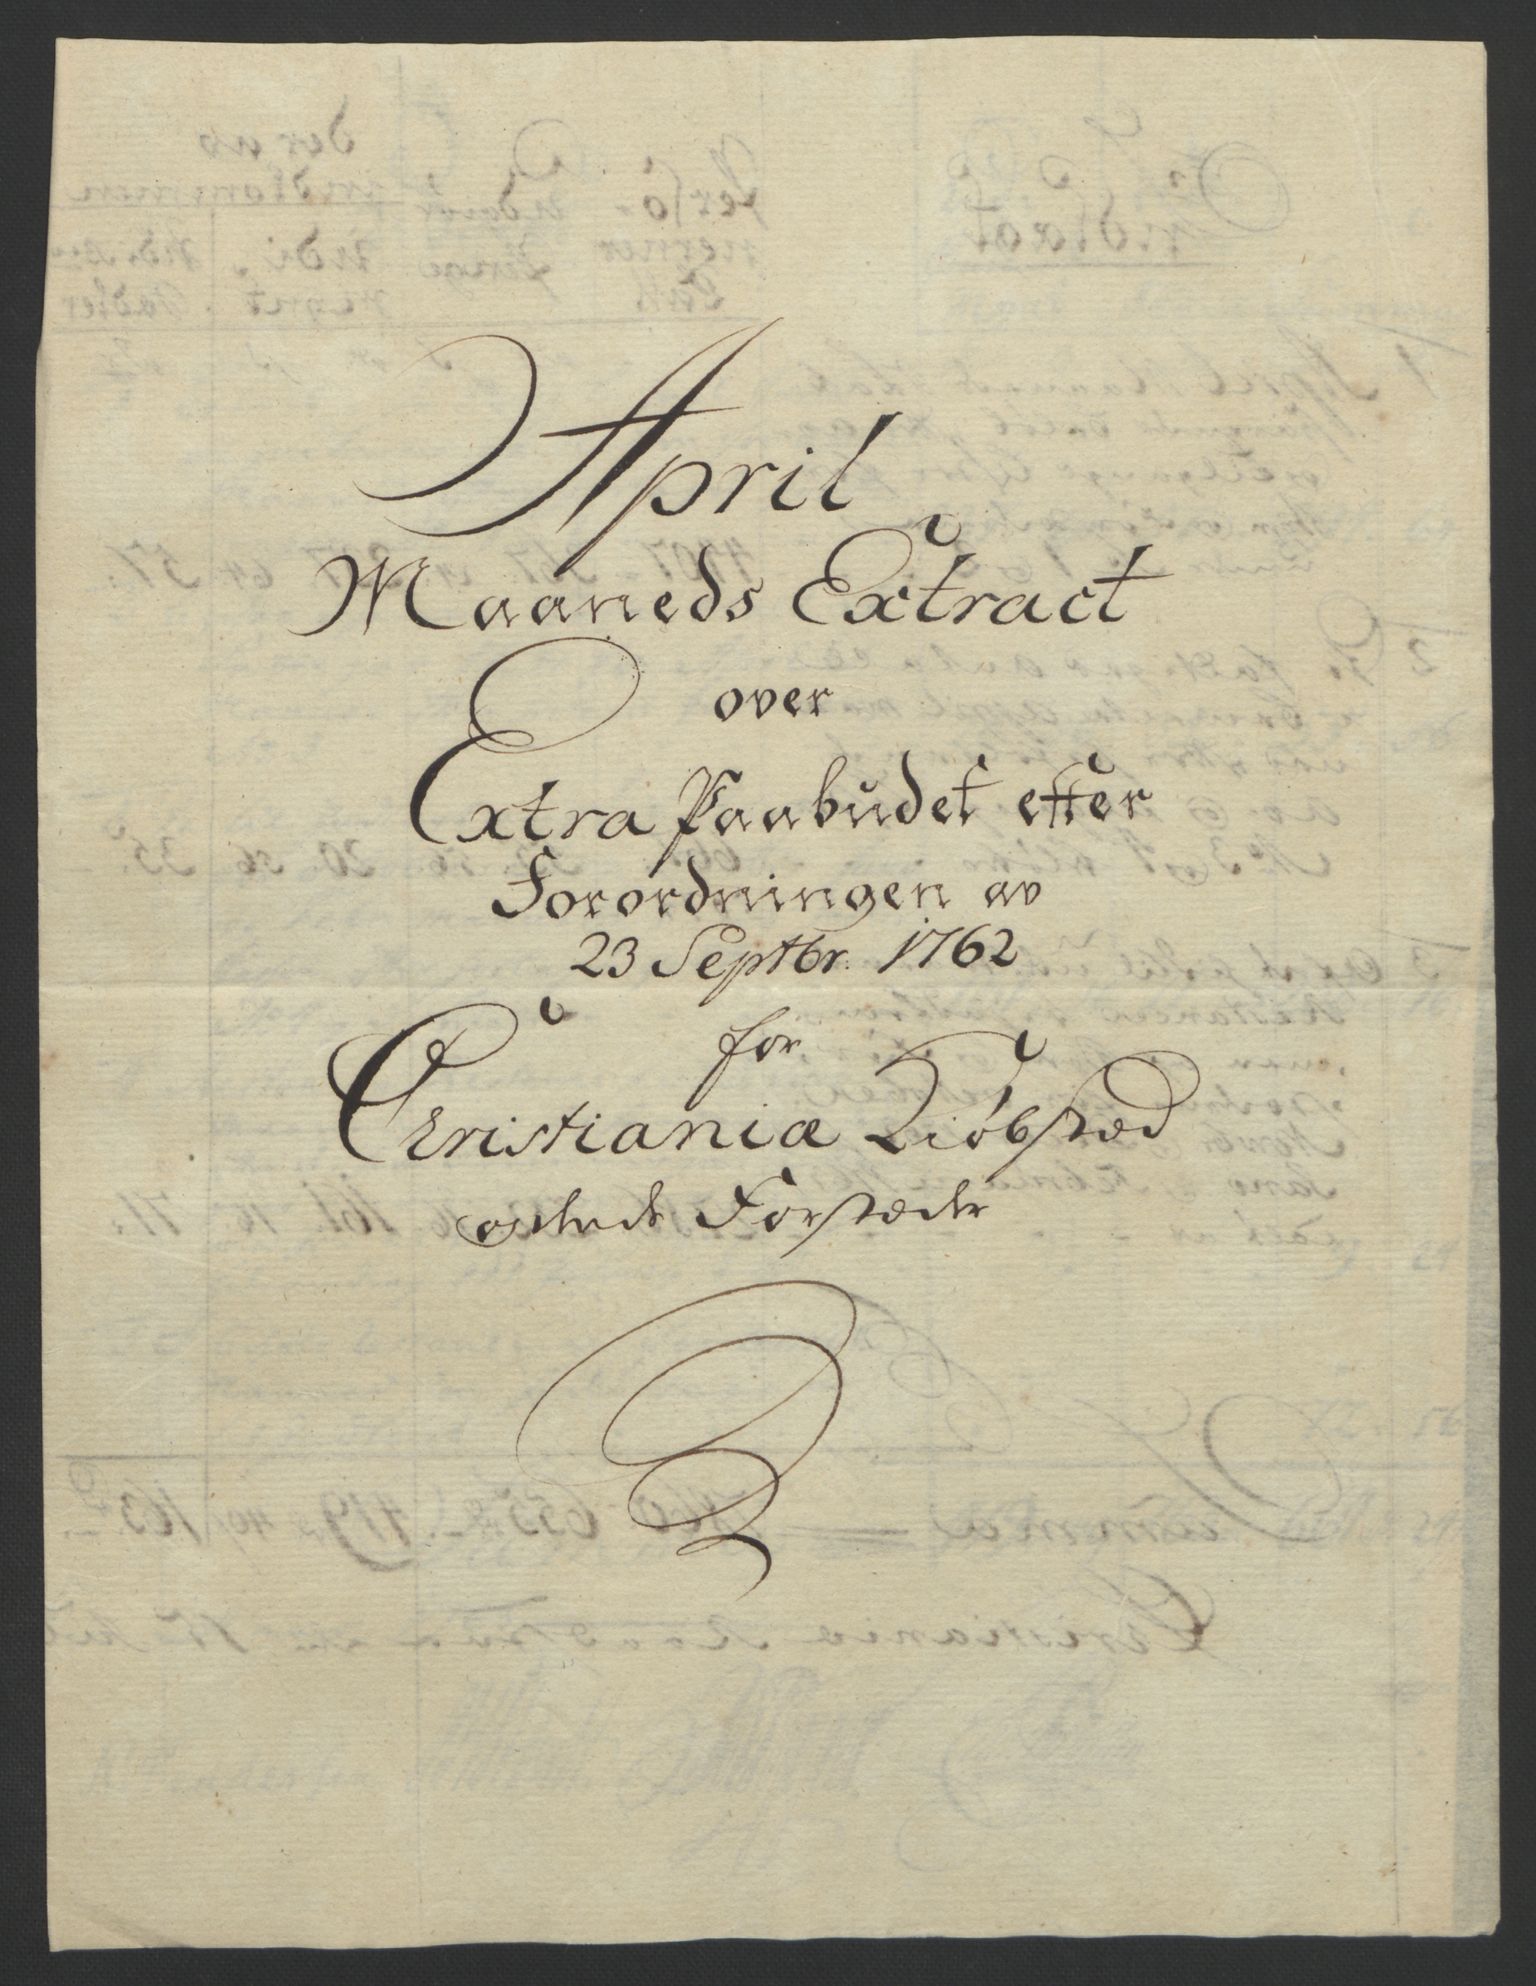 April
Maaneds Extract
over
Extra Paabudet efter
Forordningen av
23 Septbr. 1762
for
Christianiæ Kiøbstæd
og Forstæder